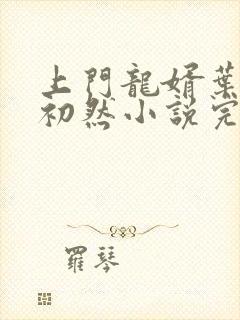 上門龍婿葉
初然小說完
羅琴